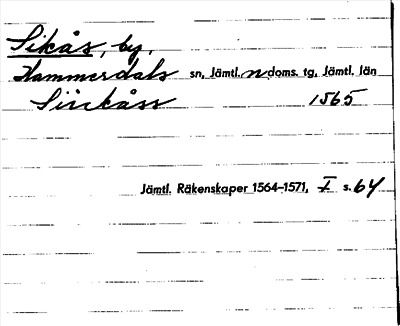 Sikås, by,
Hammerdals sn, Jämtl. n doms. tg, Jämtl. län
Siikåss 1565
Jämtl. Räkenskaper 1564–1571, I s. 64